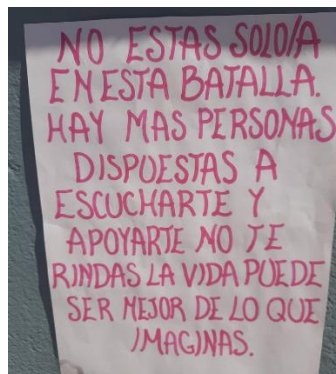 NO ESTAS SOLO/A
EN ESTA BATALLA.
HAY MAS PERSONAS
DISPUESTAS A
ESCUCHARTE Y
APOYARTE NO TE
RINDAS LA VIDA PUEDE
SER MEJOR DE LO QUE
IMAGINAS.